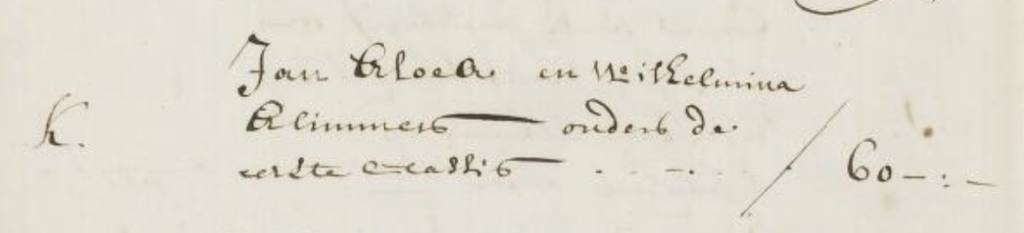 Jan Kloek en Wilhelmina
K. Klimmers onders de
eerste Classis . . - . / 60 - : -